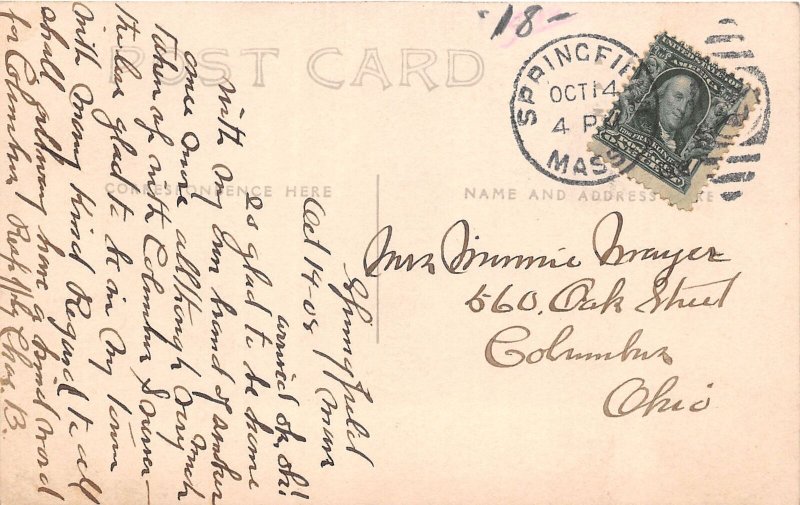 -18-
POST CARD
SPRINGFIE
OCT 14
4 P
MASS
CORRESPONDENCE HERE
NAME AND ADDRESS HERE
Mrs Minnie Mayer
560. Oak Street
Columbus
Ohio
Springfield
Mass
Oct 14-08
arrived ok. oh!
so glad to be home
with my own brand of
once more allthough very much
taken up with Columbus
the less glad to be in my town
with many kind Regards to all
shall allways have a kind word
for Columbus Respffly Chas. B.